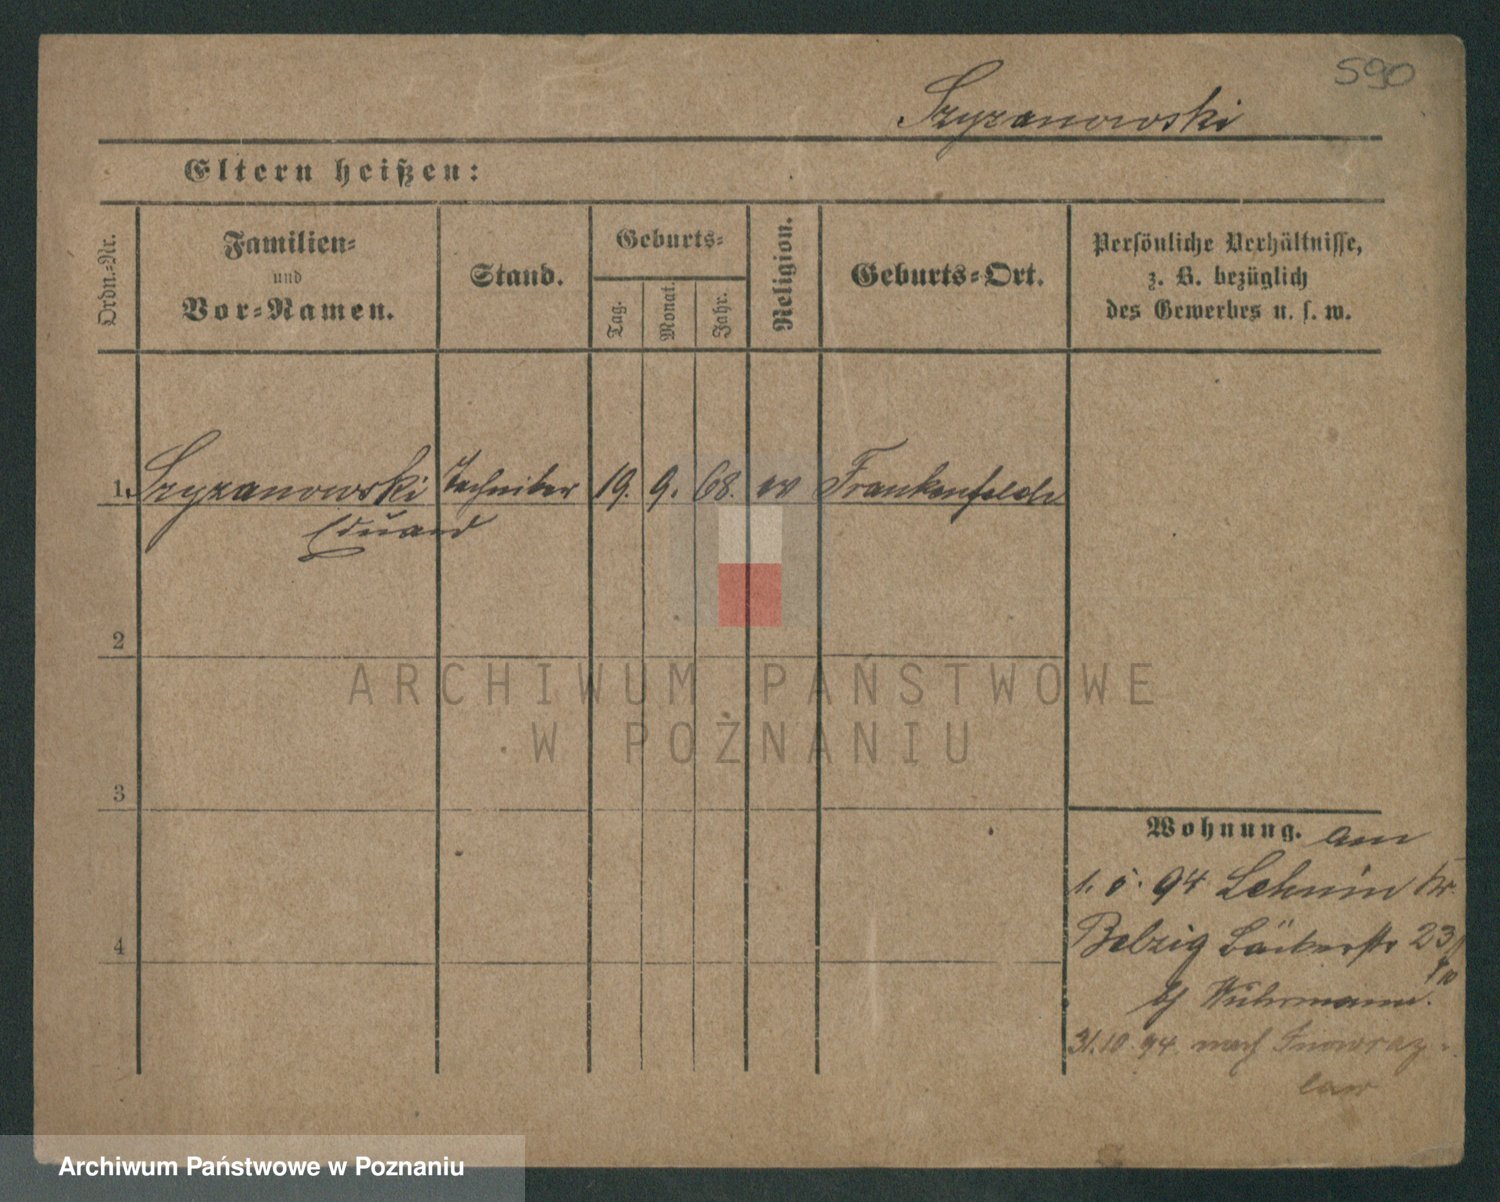 590
Szyzanowski
Eltern heißen:
Ordn.-Nr.
Familien-
und
Vor-Namen.
Stand.
Geburts-
Tag.
Monat.
Jahr.
Religion.
Geburts-Ort.
Persönliche Verhältnisse,
z. B. bezüglich
des Gewerbes u. s. w.
1. Szyzanowski Techniker 19. 9. 68. ev Frankenfelde
Eduard
2
3
4
Wohnung. am
1. 5. 94 Lehnin Kr.
Belzig Bäckerstr 23
bj Wuhrmann.
31.10.94. nach Inowraz-
law
ARCHIWUM PAŃSTWOWE
W POZNANIU
Archiwum Państwowe w Poznaniu